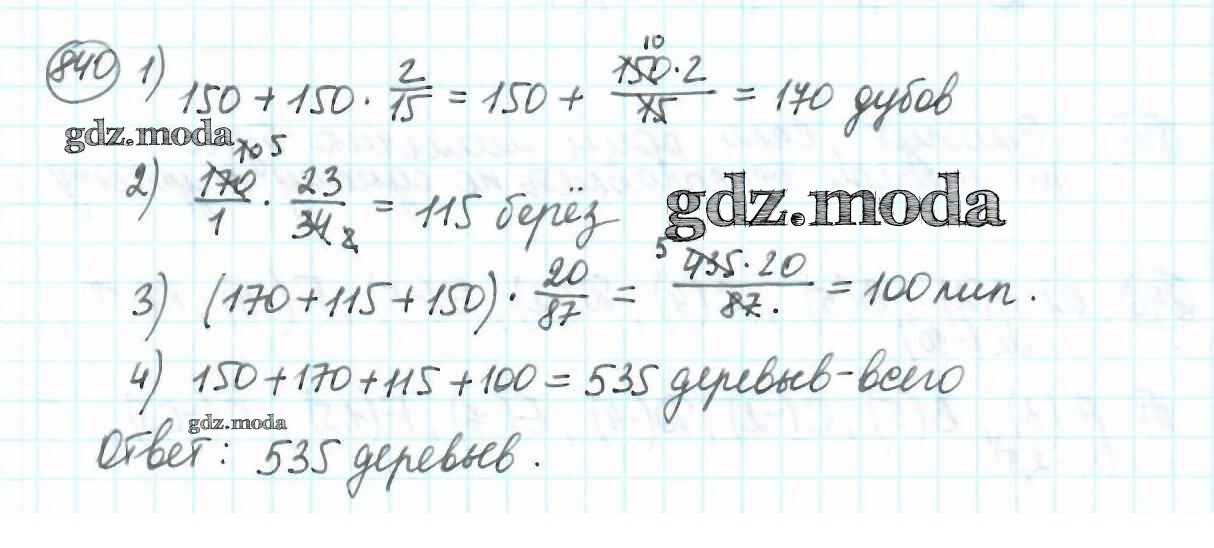 840 1) 150 + 150 · 2/15 = 150 + 150 · 2/15 = 170 дубов
gdz.moda
2) 170/1 · 23/34 = 115 берёз
gdz.moda
3) (170 + 115 + 150) · 20/87 = 435 · 20/87 = 100 лип.
4) 150 + 170 + 115 + 100 = 535 деревьев - всего
gdz.moda
Ответ: 535 деревьев.